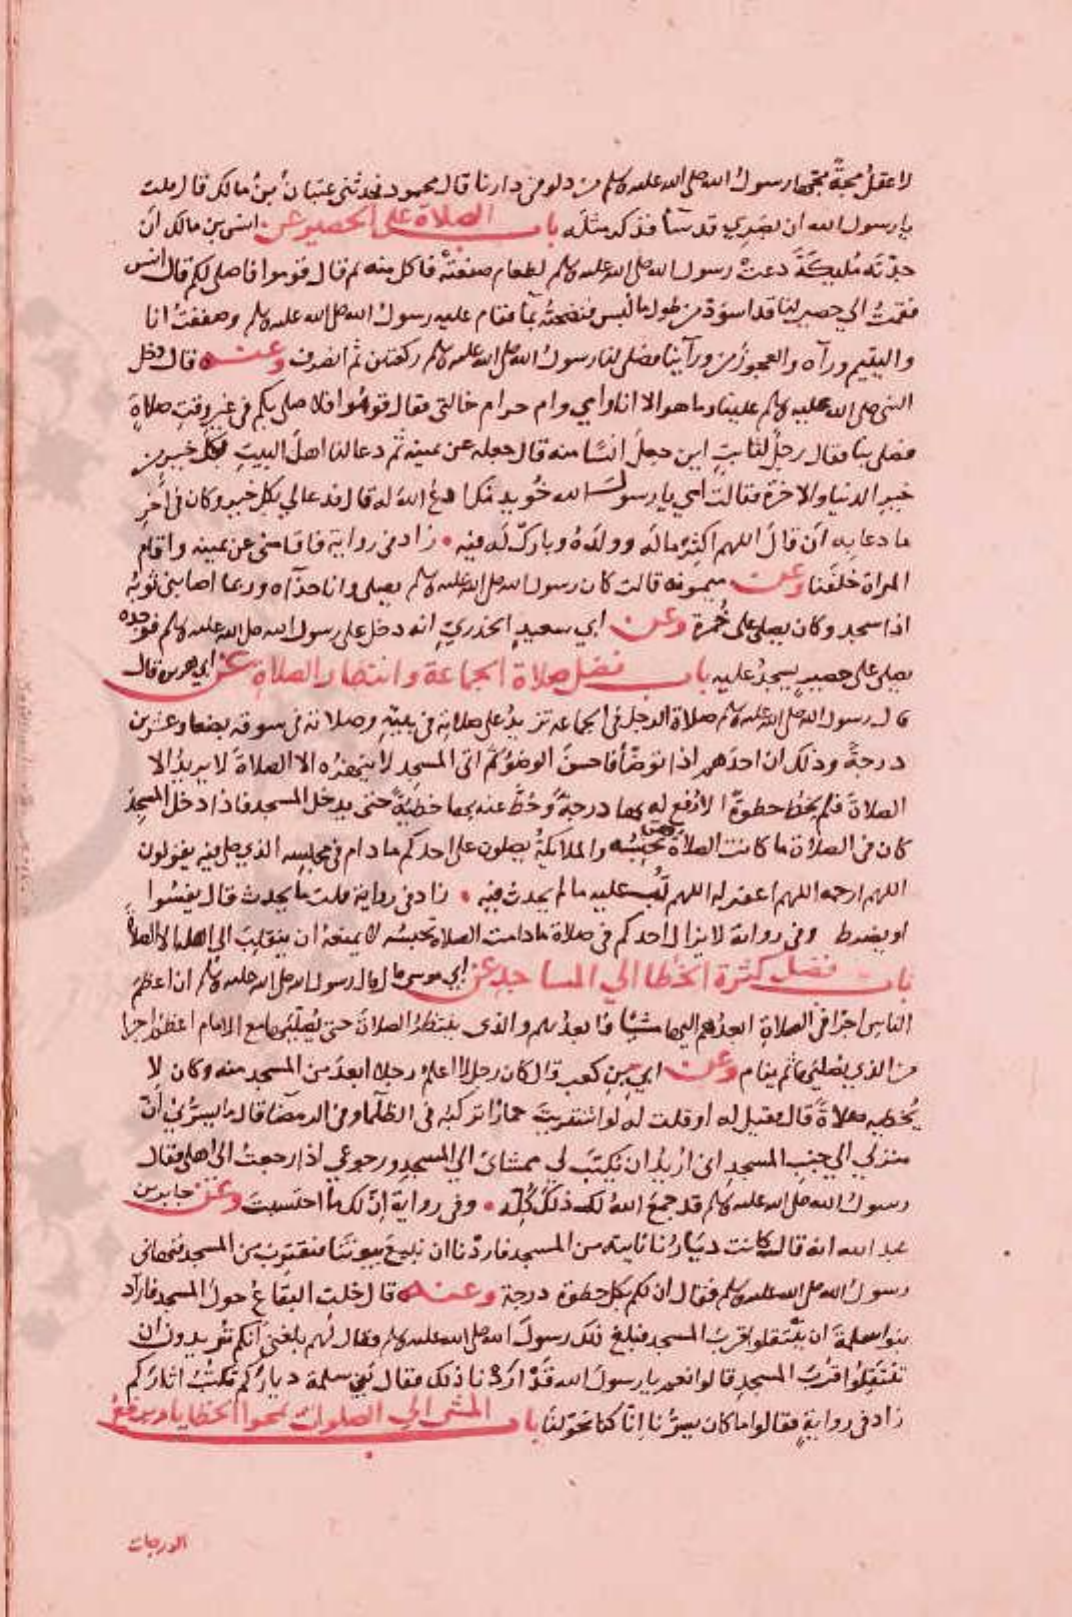 لاعقل مجة مجها رسول الله صلى الله عليه وسلم من دلو من دارنا قال محمود فحدثنى عتبان بن مالك قال قلت
يا رسول الله ان بصري قد سآ فذكر مثله باب الصلاة على الحصير عن انس بن مالك ان
جدته مليكة دعت رسول الله صلى الله عليه وسلم لطعام صنعته فاكل منه ثم قال قوموا فاصلى لكم قال انس
فقمت الي حصير لنا قد اسود من طول ما لبس فنضحته بمآ فقام عليه رسول الله صلى الله عليه وسلم وصففت انا
واليتيم ورآه والعجوز من ورآينا فصلى لنا رسول الله صلى الله عليه وسلم ركعتين ثم انصرف وعنه قال دخل
النبى صلى الله عليه وسلم علينا وما هو الا انا وامي وام حرام خالتى فقال قوموا فلاصلى بكم فى غير وقت صلاة
فصلى بنا فقال رجل لثابت اين جعل انسا منه قال جعله عن يمينه ثم دعا لنا اهل البيت بكل خير من
خير الدنيا والاخرة فقالت امي يا رسول الله خويدمك ادع الله له قال فدعا لي بكل خير وكان فى اخر
ما دعا به ان قال اللهم اكثر ماله وولده وبارك له فيه زاد فى رواية فاقامنى عن يمينه واقام
المراة خلفنا وعن ميمونه قالت كان رسول الله صلى الله عليه وسلم يصلى وانا حذآه وربما اصابنى ثوبه
اذا سجد وكان يصلى على خمرة وعن ابي سعيد الخدري انه دخل على رسول الله صلى الله عليه وسلم فوجده
يصلى على حصير يسجد عليه باب فضل صلاة الجماعة وانتظار الصلاة عن ابي هريرة قال
قال رسول الله صلى الله عليه وسلم صلاة الرجل فى الجماعه تزيد على صلاته فى بيته وصلاته فى سوقه بضعا وعشرين
درجة وذلك ان احدهم اذا توضأ فاحسن الوضو ثم اتى المسجد لا ينهزه الا الصلاة لا يريد الا
الصلاة فلم يخط خطوة الا رفع له بها درجة وحط عنه بها خطية حتى يدخل المسجد فاذا دخل المسجد
كان فى الصلاة ما كانت الصلاة هي تحبسه والملايكة يصلون على احدكم ما دام فى مجلسه الذي صلى فيه يقولون
اللهم ارحمه اللهم اغفر له اللهم تب عليه ما لم يحدث فيه زاد فى رواية قلت ما يحدث قال يفسوا
او يضرط وفى رواية لا يزال احدكم فى صلاة ما دامت الصلاة تحبسه لا يمنعه ان ينقلب الى اهله الا الصلاة
باب فضل كثرة الخطا الي المساجد عن ابي موسى قال قال رسول الله صلى الله عليه وسلم ان اعظم
الناس اجرا فى الصلاة ابعدهم اليها ممشيا فابعدهم والذى ينتظر الصلاة حتى يصليها مع الامام اعظم اجرا
من الذي يصليها ثم ينام وعن ابي بن كعب قال كان رجل لا اعلم رجلا ابعد من المسجد منه وكان لا
يخطيه صلاة قال فقيل له او قلت له لو اشتريت حمارا تركبه فى الظلما وفى الرمضا قال ما يسرني ان
منزلي الي جنب المسجد انى اريد ان يكتب لي ممشاي الي المسجد ورجوعي اذا رجعت الى اهلى فقال
رسول الله صلى الله عليه وسلم قد جمع الله لك ذلك كله وفى رواية ان لك ما احتسبت وعن جابر بن
عبد الله انه قال كانت ديارنا نايية من المسجد فاردنا ان نبيع بيوتنا فنقترب من المسجد فنهانى
رسول الله صلى الله عليه وسلم فقال ان لكم بكل خطوة درجة وعنه قال خلت البقاع حول المسجد فاراد
بنوا سلمة ان ينتقلوا قرب المسجد فبلغ ذلك رسول الله صلى الله عليه وسلم فقال لهم بلغنى انكم تريدون ان
تنتقلوا قرب المسجد قالوا نعم يا رسول الله قد اردنا ذلك فقال بنى سلمة دياركم تكتب اثاركم
زاد فى رواية فقالوا ما كان يسرنا انا كنا تحولنا باب المشى الي الصلوات تمحوا الخطايا ويرفع
الدرجات